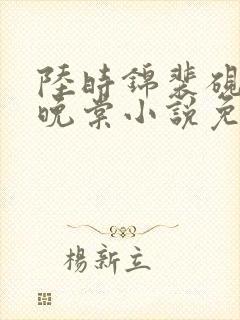 陸時錦裴硯
晚棠小說免
楊新立